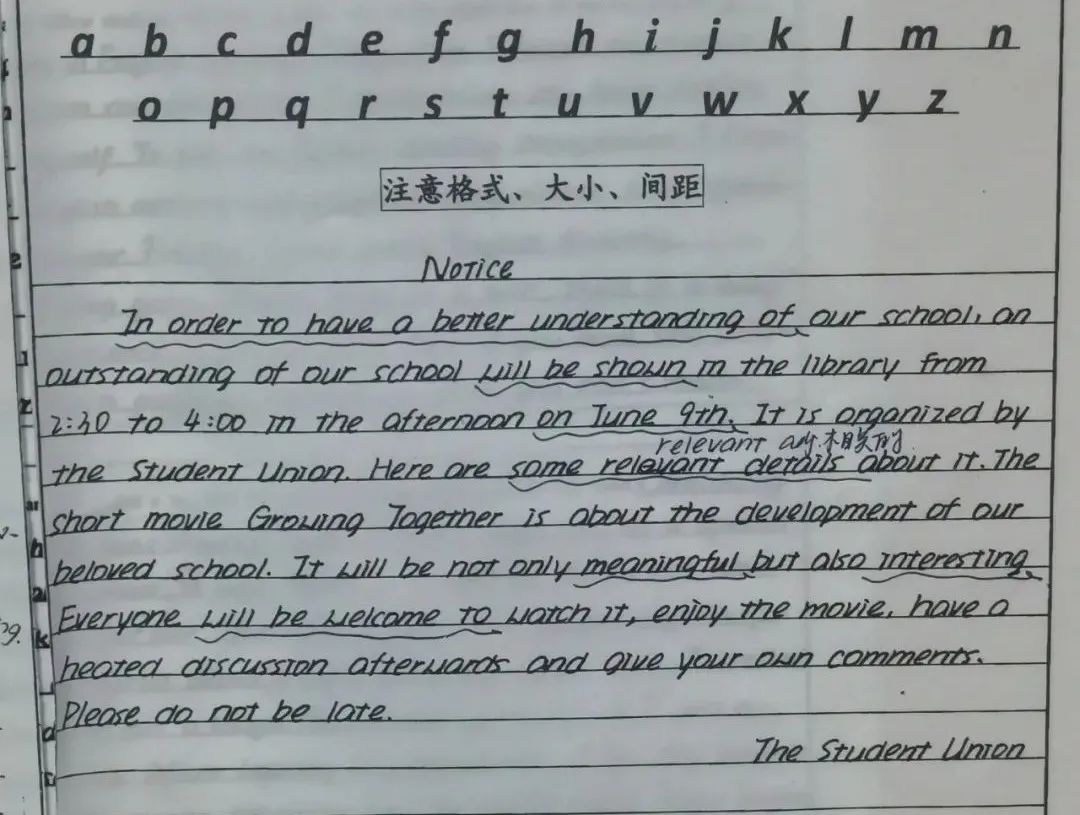 a b c d e f g h i j k l m n
o p q r s t u v w x y z
注意格式、大小、间距
Notice
In order to have a better understanding of our school, an
outstanding of our school will be shown in the library from
2:30 to 4:00 in the afternoon on June 9th. It is organized by
relevant adj.相关的
the Student Union. Here are some relevant details about it. The
short movie Growing Together is about the development of our
beloved school. It will be not only meaningful but also interesting.
Everyone will be welcome to watch it, enjoy the movie, have a
heated discussion afterwards and give your own comments.
Please do not be late.
The Student Union